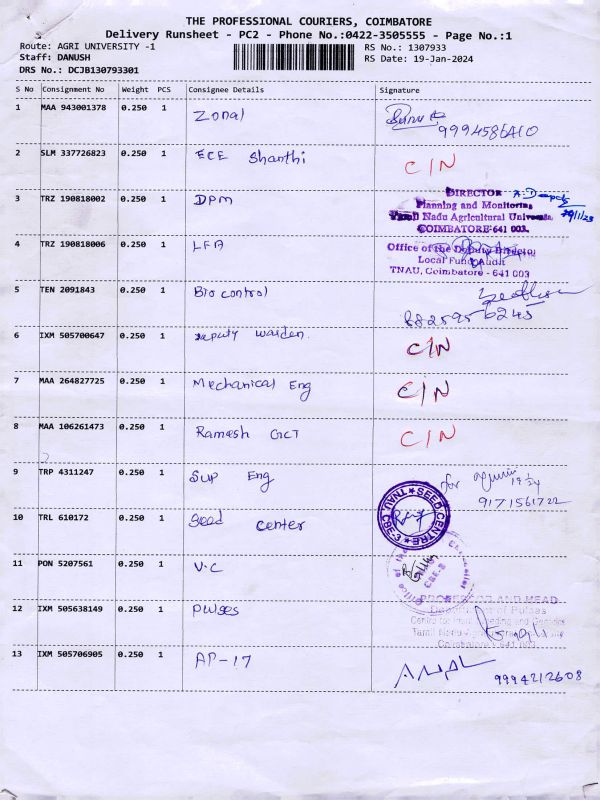 THE PROFESSIONAL COURIERS, COIMBATORE
Delivery Runsheet - PC2 - Phone No.:0422-3505555 - Page No.:1
Route: AGRI UNIVERSITY -1 RS No.: 1307933
Staff: DANUSH RS Date: 19-Jan-2024
DRS No.: DCJB130793301
S No Consignment No Weight PCS Consignee Details Signature
1 MAA 943001378 0.250 1 Zonal
2 SLM 337726823 0.250 1 ECE Shanthi C/N
3 TRZ 190818002 0.250 1 DPM
DIRECTOR
Planning and Monitoring
Tamil Nadu Agricultural University
COIMBATORE-641 003.
4 TRZ 190818006 0.250 1 LFA
Office of the Deputy Director
Local Fund Audit
TNAU, Coimbatore - 641 003
5 TEN 2091843 0.250 1 Bio control
8825956245
6 IXM 505700647 0.250 1 Deputy warden. C/N
7 MAA 264827725 0.250 1 Mechanical Eng C/N
8 MAA 106261473 0.250 1 Ramesh GCT C/N
9 TRP 4311247 0.250 1 Sup Eng for
9171561722
10 TRL 610172 0.250 1 Seed center
SEED CENTRE TNAU CBE-3
11 PON 5207561 0.250 1 V.C
Office of the
CBE-3
12 IXM 505638149 0.250 1 Pulses
PROFESSOR AND HEAD
Department of Pulses
Coimbatore - 641 003.
13 IXM 505706905 0.250 1 AP-17
9994212608